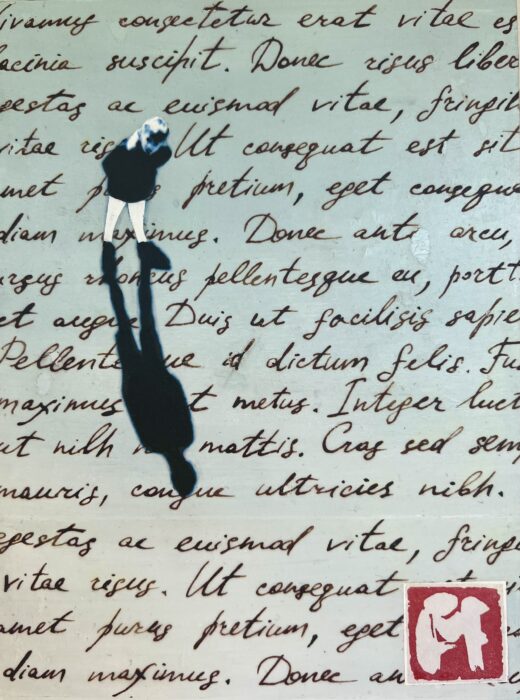 Vivamus consectetur erat vitae
lacinia suscipit. Donec risus liber
egestas ac euismod vitae, fringil
vitae Ut consequat est sit
amet pretium, eget conseque
diam maximus. Donec ante arcu,
rhoncus pellentesque eu, portt
et augue Duis ut facilisis sapie
id dictum felis. Fu
maximus t metus. Integer luct
ut nibh mattis. Cras sed semp
mauris, congue ultricies nibh.
egestas ac euismod vitae, fringi
vitae risus. Ut consequat
amet purus pretium, eget
diam maximus. Donec an